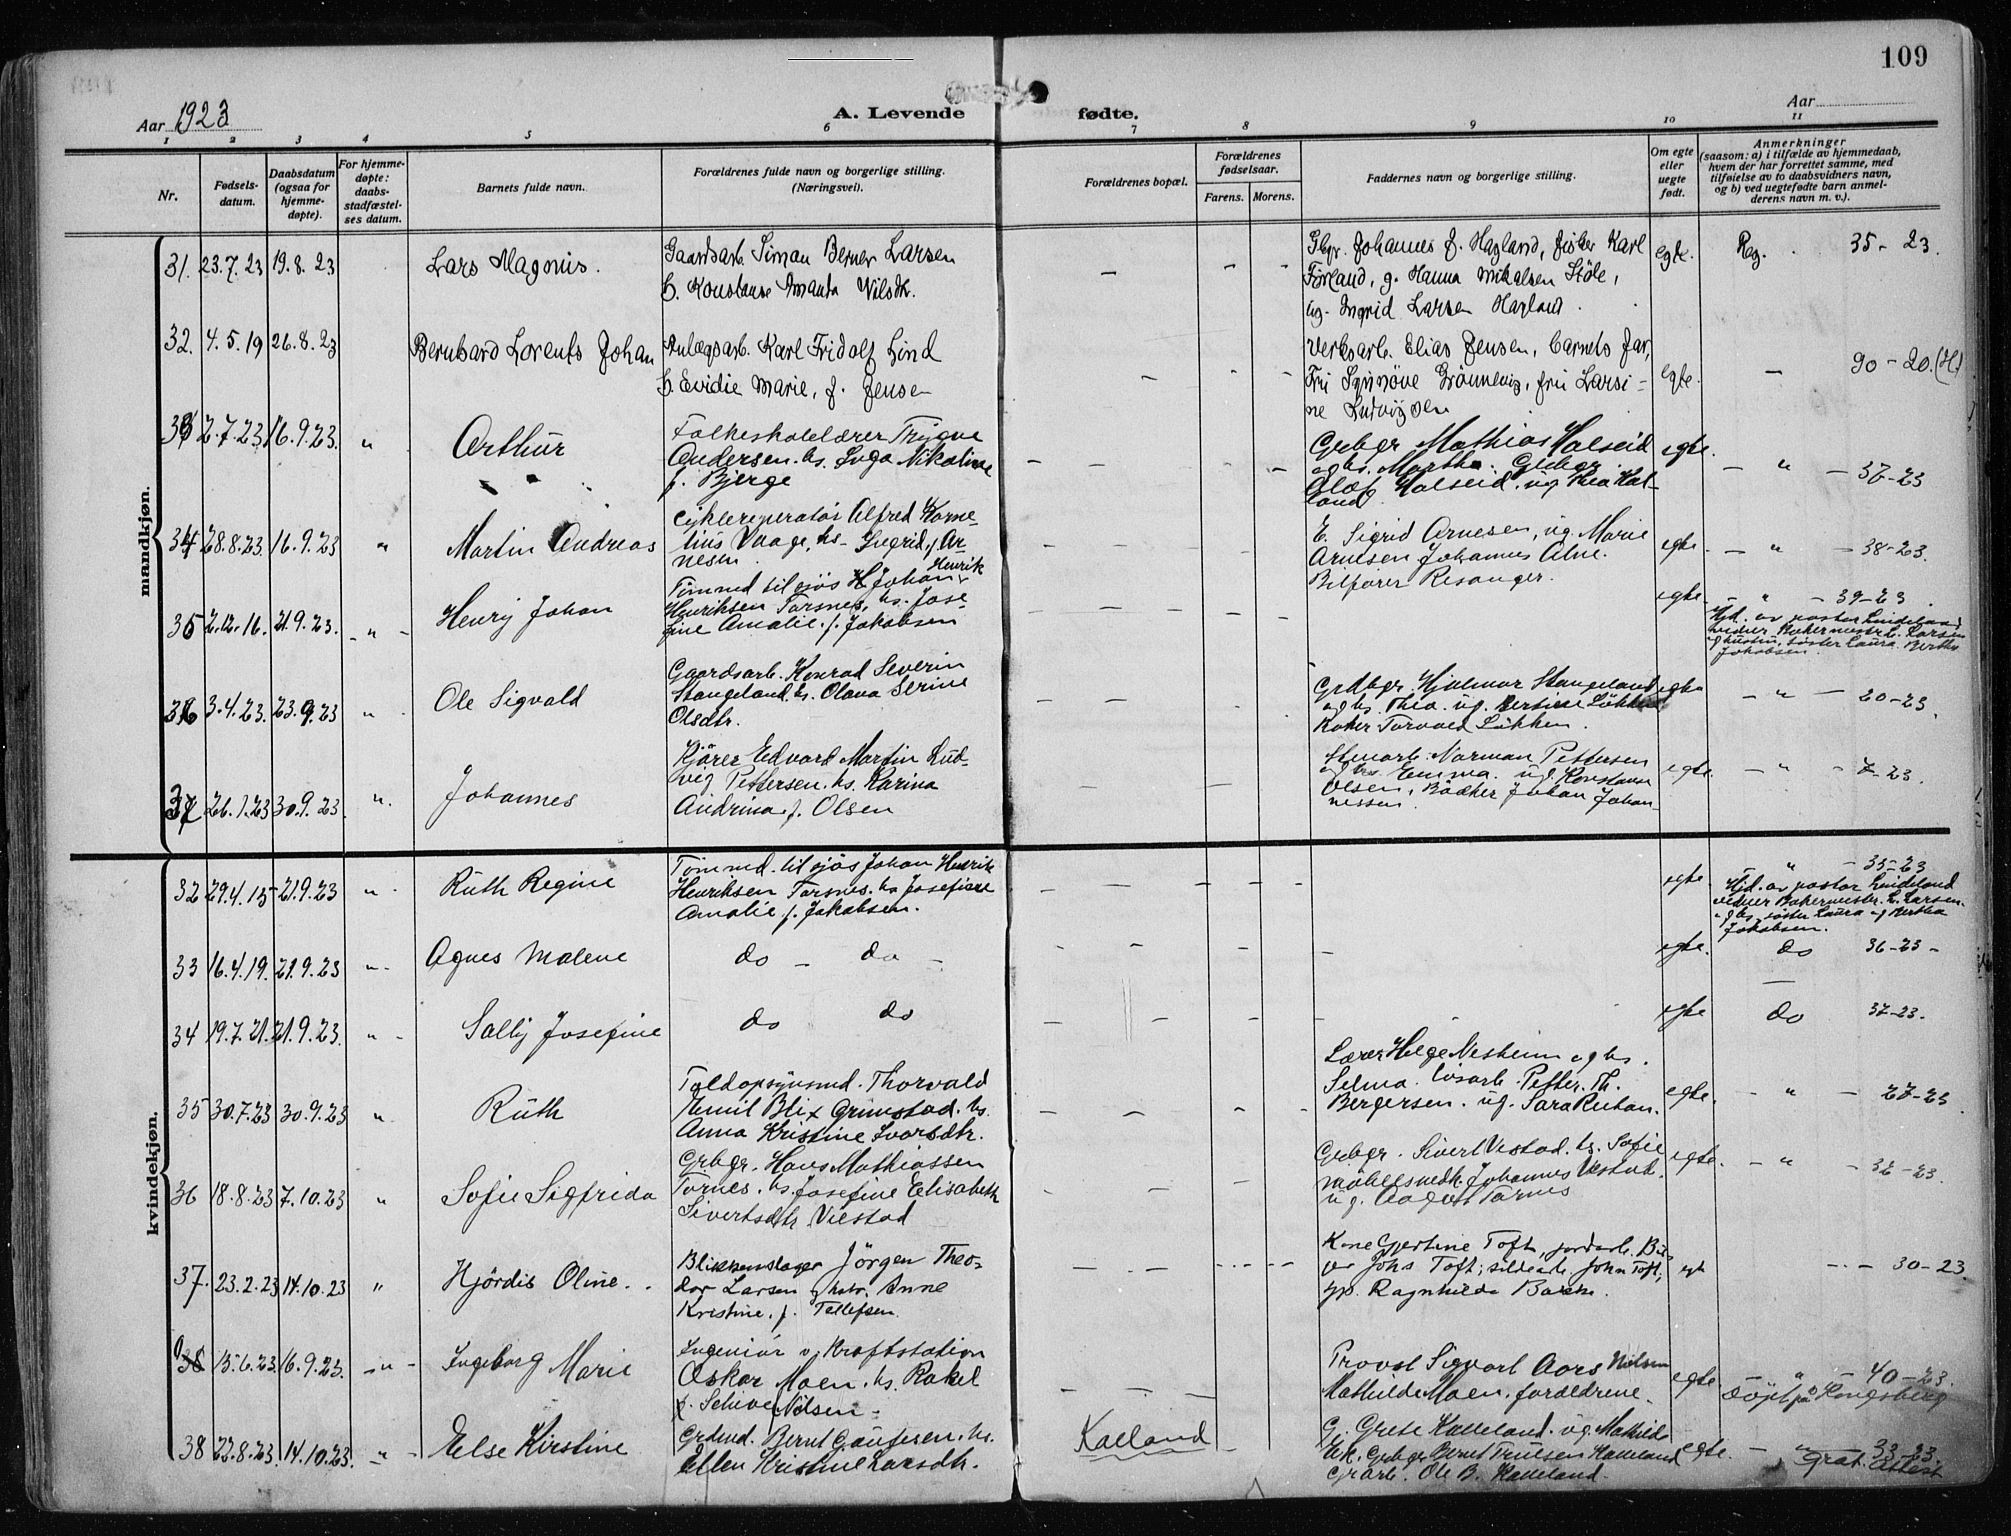 109
Aar 1923
A. Levende fødte.
Aar
1 2 3 4 5 6 7 8 9 10 11
Nr.
Fødsels-
datum.
Daabsdatum
(ogsaa for
hjemme-
døpte).
For hjemme-
døpte:
daabs-
stadfæstel-
ses datum.
Barnets fulde navn.
Forældrenes fulde navn og borgerlige stilling.
(Næringsvei).
Forældrenes bopæl.
Forældrenes
fødselsaar.
Farens. Morens.
Faddernes navn og borgerlige stilling.
Om egte
eller
uegte
født.
Anmerkninger
(saasom: a) i tilfælde av hjemmedaab,
hvem der har forrettet samme, med
tilføielse av to daabsvidners navn,
og b) ved uegtefødte barn anmel-
derens navn m. v.).
mandkjøn.
31. 23.7.23 19.8.23
Lars Magnus.
Gaardsarb. Simon Berner Larsen
h. Konstanse Amanda Nilsdt.
Gbr. Johannes J. Hagland, fisker Karl
Førland, g. Hanna Mikalsen Støle,
ug. Ingrid Larsen Hagland.
egte.
Reg. 35-23.
32. 4.5.19 26.8.23
Bernhard Lorents Johan
Anlægsarb. Karl Fridolf Lind
h. Evidie Marie, f. Jensen
Verksarb. Elias Jensen, barnets far,
Fru Synnøve Grønnevig, fru Larsi-
ne Ludvigsen
egte.
- 90-20.(H)
33 2.7.23 16.9.23. "
Arthur
Folkeskolelærer Trygve
Andersen. hs. Inga Nikoline
f. Bjerge
Grbgr Mathias Halseid
og hs. Martha. Grbgr
Olaf Halseid. ug Thea Hal-
land
egte.
- " - 37-23
34 28.8.23. 16.9.23 "
Martin Andreas
Cyklereperatør Alfred Korne-
lius Vaage, hs- Ingrid, f Ar-
nesen
E. Sigrid Arnesen, ug. Marie
Arnesen Johannes Alne.
Bilfører Risanger.
egte.
- " - 38-23.
35 2.12.16. 21.9.23. - " -
Henry Johan
Tømmd til sjøs Johan Henrik
Henriksen Torsnes, hs. Jose-
fine Amalie. f. Jakobsen
egte.
- " - 39-23
Hjd. av pastor Lindeland
vidner Bakermester L. Larsen
og hustru, søster Laura. Bertha
Jakobsen.
36 3.4.23. 23.9.23 "
Ole Sigvald
Gaardsarb. Konrad Severin
Stangeland. hs. Olava Serine
Olsdtr.
Grdbgr Hjalmar Stangeland
og hs. Thea. ug. Bertine Løkken
Baker Torvald Løkken.
egte
- " - 20-23.
37 26.1.23 30.9.23 ".
Johannes
Kjører Edvard Martin Lud-
vig Pettersen. hs. Karina
Andrina f. Olsen
Stenarb. Norman Pettersen
og hs. Emma. ug. Konstanse
Olsen, Bødker Johan Johan-
nessen.
egte.
- " - 7-23.
kvindekjøn.
32 29.4.15 21.9.23 "
Ruth Regine
Tømmd. til sjøs Johan Henrik
Henriksen Torsnes. hs Josefine
Amalie f. Jakobsen.
egte
" - 35-23
Hjd. av pastor Lindeland
vidner Bakermester. L. Larsen.
og hs. søster Laura og Bertha
Jakobsen.
33 16.4.19. 21.9.23 " -
Agnes Malene
do - do -
egte.
do 36-23 -
34 19.7.21. 21.9.23. " -
Sally Josefine
do do
egte
do 37-23.
35 30.7.23 30.9.23 "
Ruth
Toldopsynsmd. Thorvald
Emil Blix Grimstad. hs.
Anna Kristine Ivarsdtr.
Lærer Helge Nesheim og hs.
Selma. Løsarb. Petter. Th.
Bergersen. ug. Sara Reitan.
egte.
- " - 27-23
36 18.8.23 7.10.23 "
Sofie Sigfrida
Grbgr. Hans Mathiassen
Tornes. hs. Josefine Elisabeth
Sivertsdtr Vestad
Grbgr. Sivert Vestad. hs. Sofie
møbelsnedk. Johannes Vestad.
ug. Aagot Tornes
egte.
- " - 32-23.
37. 23.2.23 14.10.23 "
Hjørdis Oline.
Blikkenslager Jørgen Theo-
dor Larsen og hstr. Anne
Kristine, f. Tellefsen.
Kone Gjertine Toft, jordarb. Bir
ger Johs Toft; sildearb. John Toft;
gp. Ragnhilda Bakke.
egt
- - 30-23
38 15.6.23 16.9.23. - " -
Ingeborg Marie
Ingeniør v. Kraftstation
Oskar Moen. hs. Rakel
f. Schive Nilsen -
Provst Sigvart Aars Nilsen
Mathilde Moen. foreldrene.
egte
- " - 40-23.
Døpt på Kongsberg
38 22.8.23. 14.10.23. - " -
Else Kirstine
Grdmd. Bernt Gautesen. hs.
Ellen Kristine Larsdtr.
Kalland
G. Grete Kalleland. ug. Mathilde
Grbgr Bernt Knutsen Kalleland
Grarb. Ole B. Kalleland.
egte.
- " - 33-23.
Grat. Attest